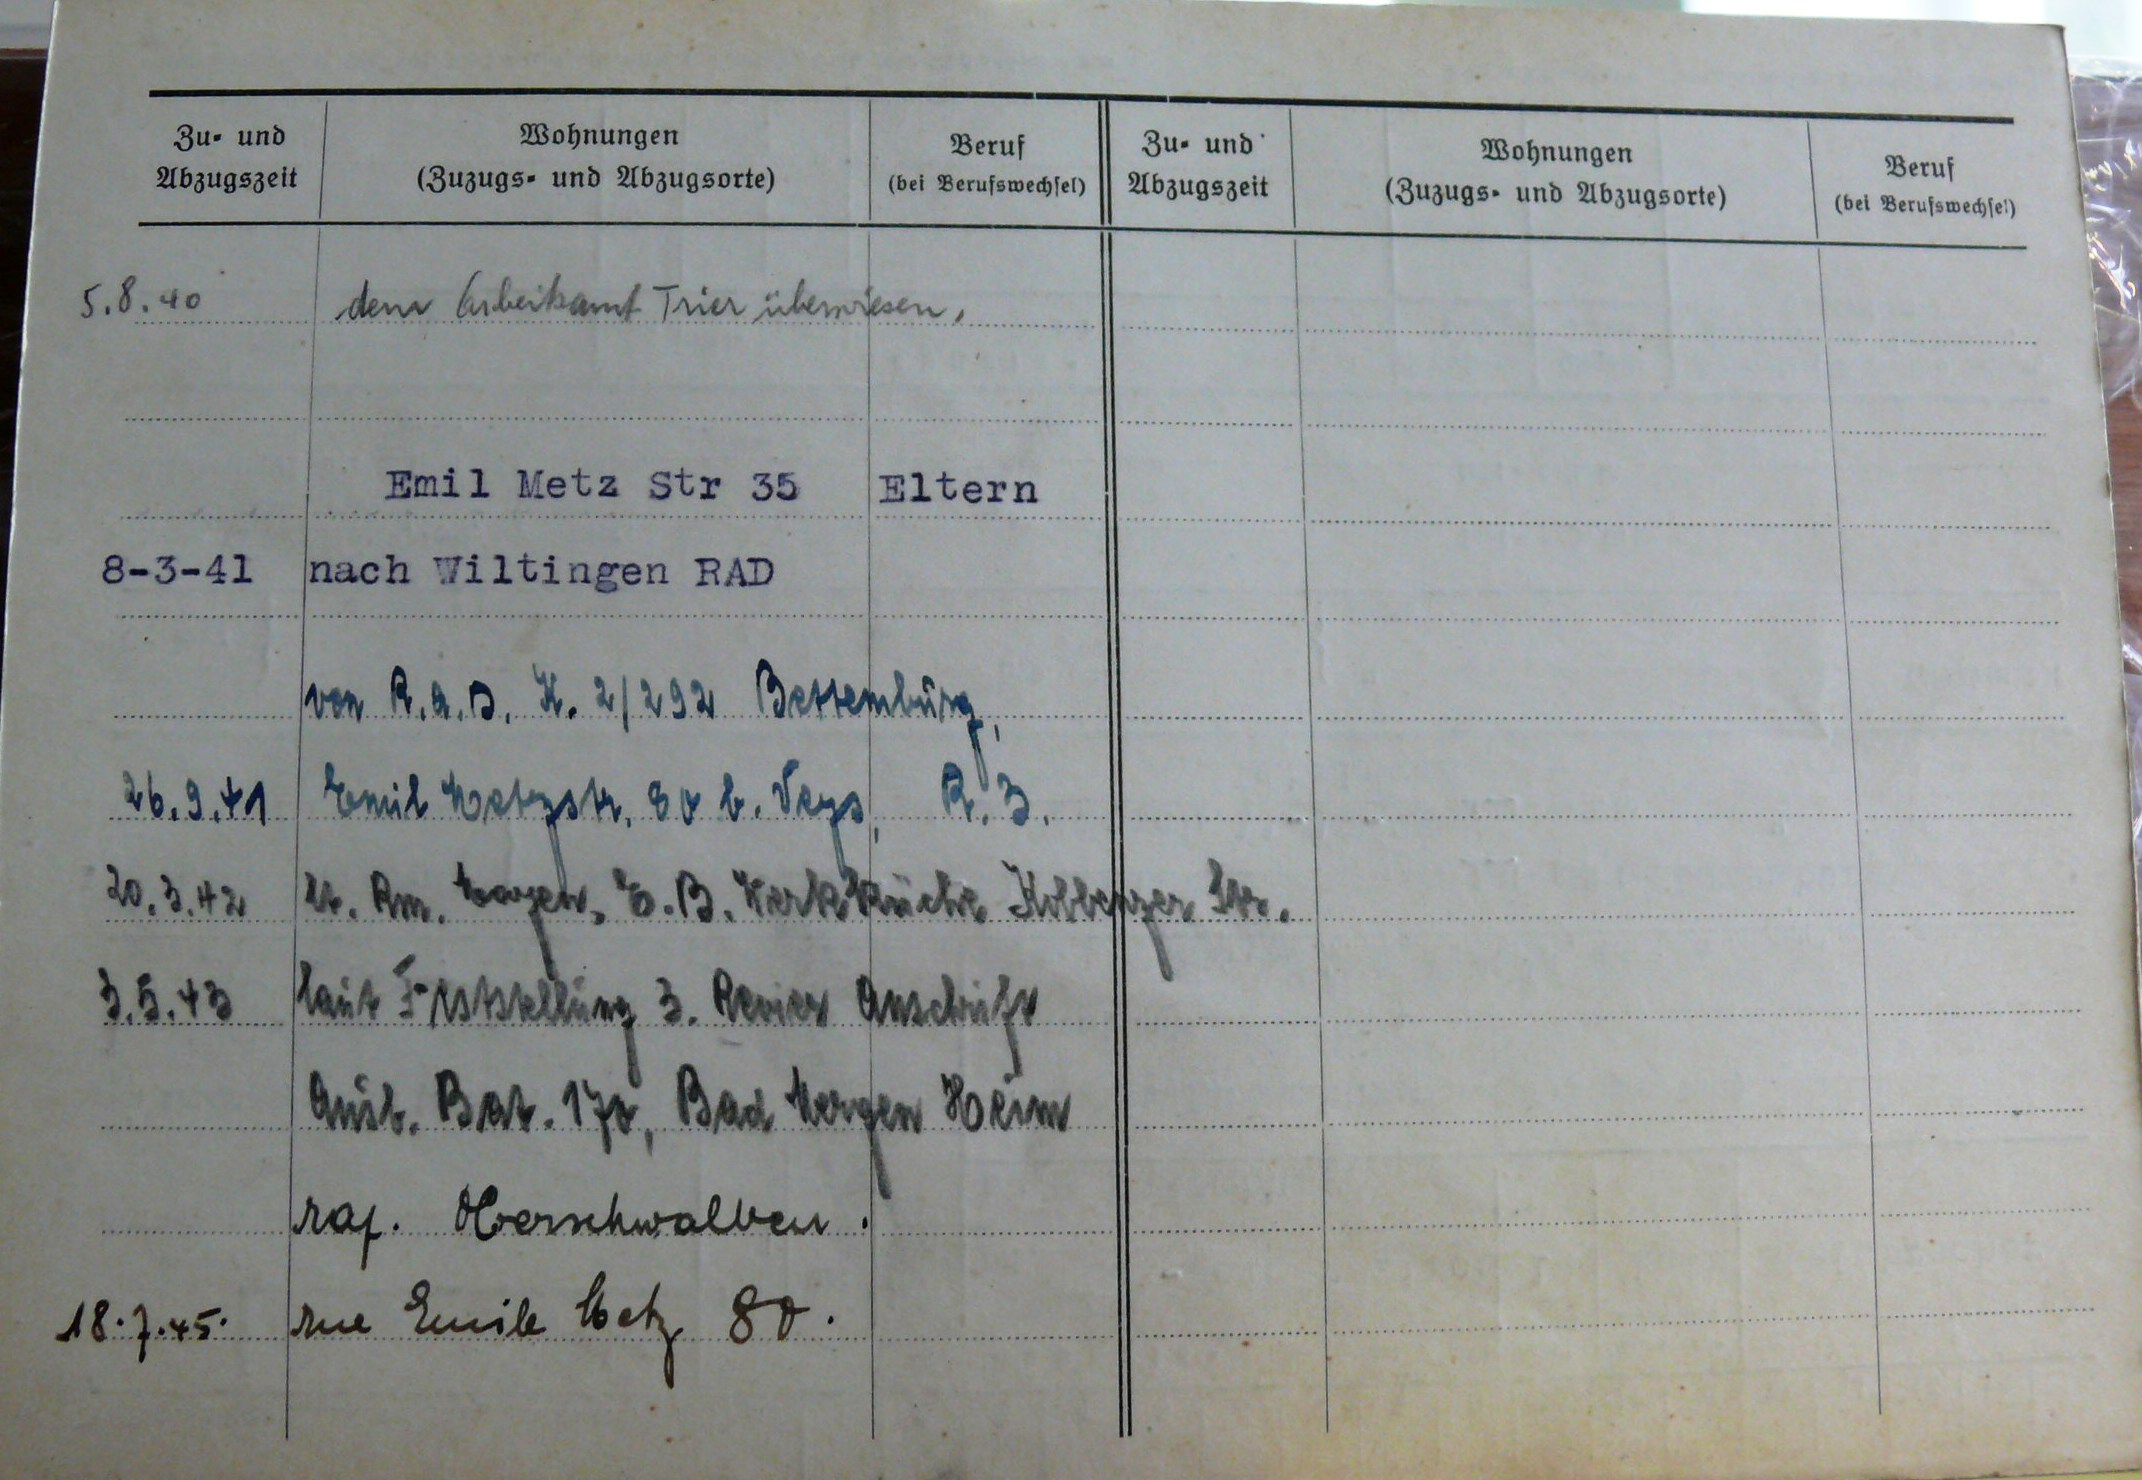 Zu- und Abzugszeit
Wohnungen (Zuzugs- und Abzugsorte)
Beruf (bei Berufswechsel)
Zu- und Abzugszeit
Wohnungen (Zuzugs- und Abzugsorte)
Beruf (bei Berufswechsel)
5.8.40 dem Arbeitsamt Trier überwiesen.
Emil Metz Str 35 Eltern
8-3-41 nach Wiltingen RAD
von R.A.D. K. 2/292 Bettemburg,
26.9.41 Emil Metzstr. 80 b. Veys, R. 3.
20.3.42 lt. Am. E.B. Werkküche Str.
3.5.43 laut Feststellung 3. Revier Anschrift
Ausb. Bat. 170, Bad Mergen Heim
rap. Oberschwalben.
18.7.45. rue Emile Metz 80.